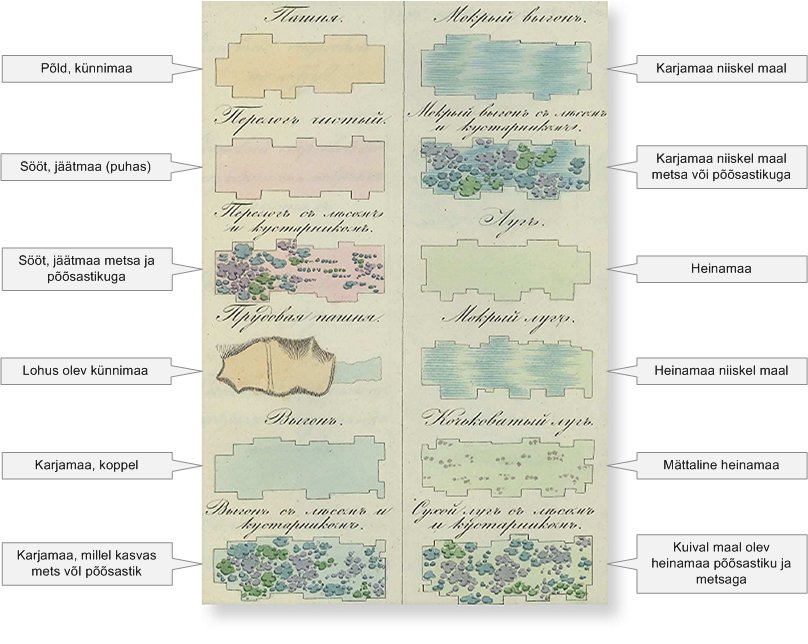 Пашня.
Мокрый выгонъ.
Põld, künnimaa
Karjamaa niiskel maal
Перелогъ чистый.
Мокрый выгонъ съ лѣсомъ
и кустарникомъ.
Sööt, jäätmaa (puhas)
Karjamaa niiskel maal
metsa või põõsastikuga
Перелогъ съ лѣсомъ
и кустарникомъ.
Лугъ.
Sööt, jäätmaa metsa ja
põõsastikuga
Heinamaa
Прудовая пашня.
Мокрый лугъ.
Lohus olev künnimaa
Heinamaa niiskel maal
Выгонъ.
Кочьковатый лугъ.
Karjamaa, koppel
Mättaline heinamaa
Выгонъ съ лѣсомъ и
кустарникомъ.
Сухой лугъ съ лѣсомъ
и кустарникомъ.
Karjamaa, millel kasvas
mets võI põõsastik
Kuival maal olev
heinamaa põõsastiku ja
metsaga